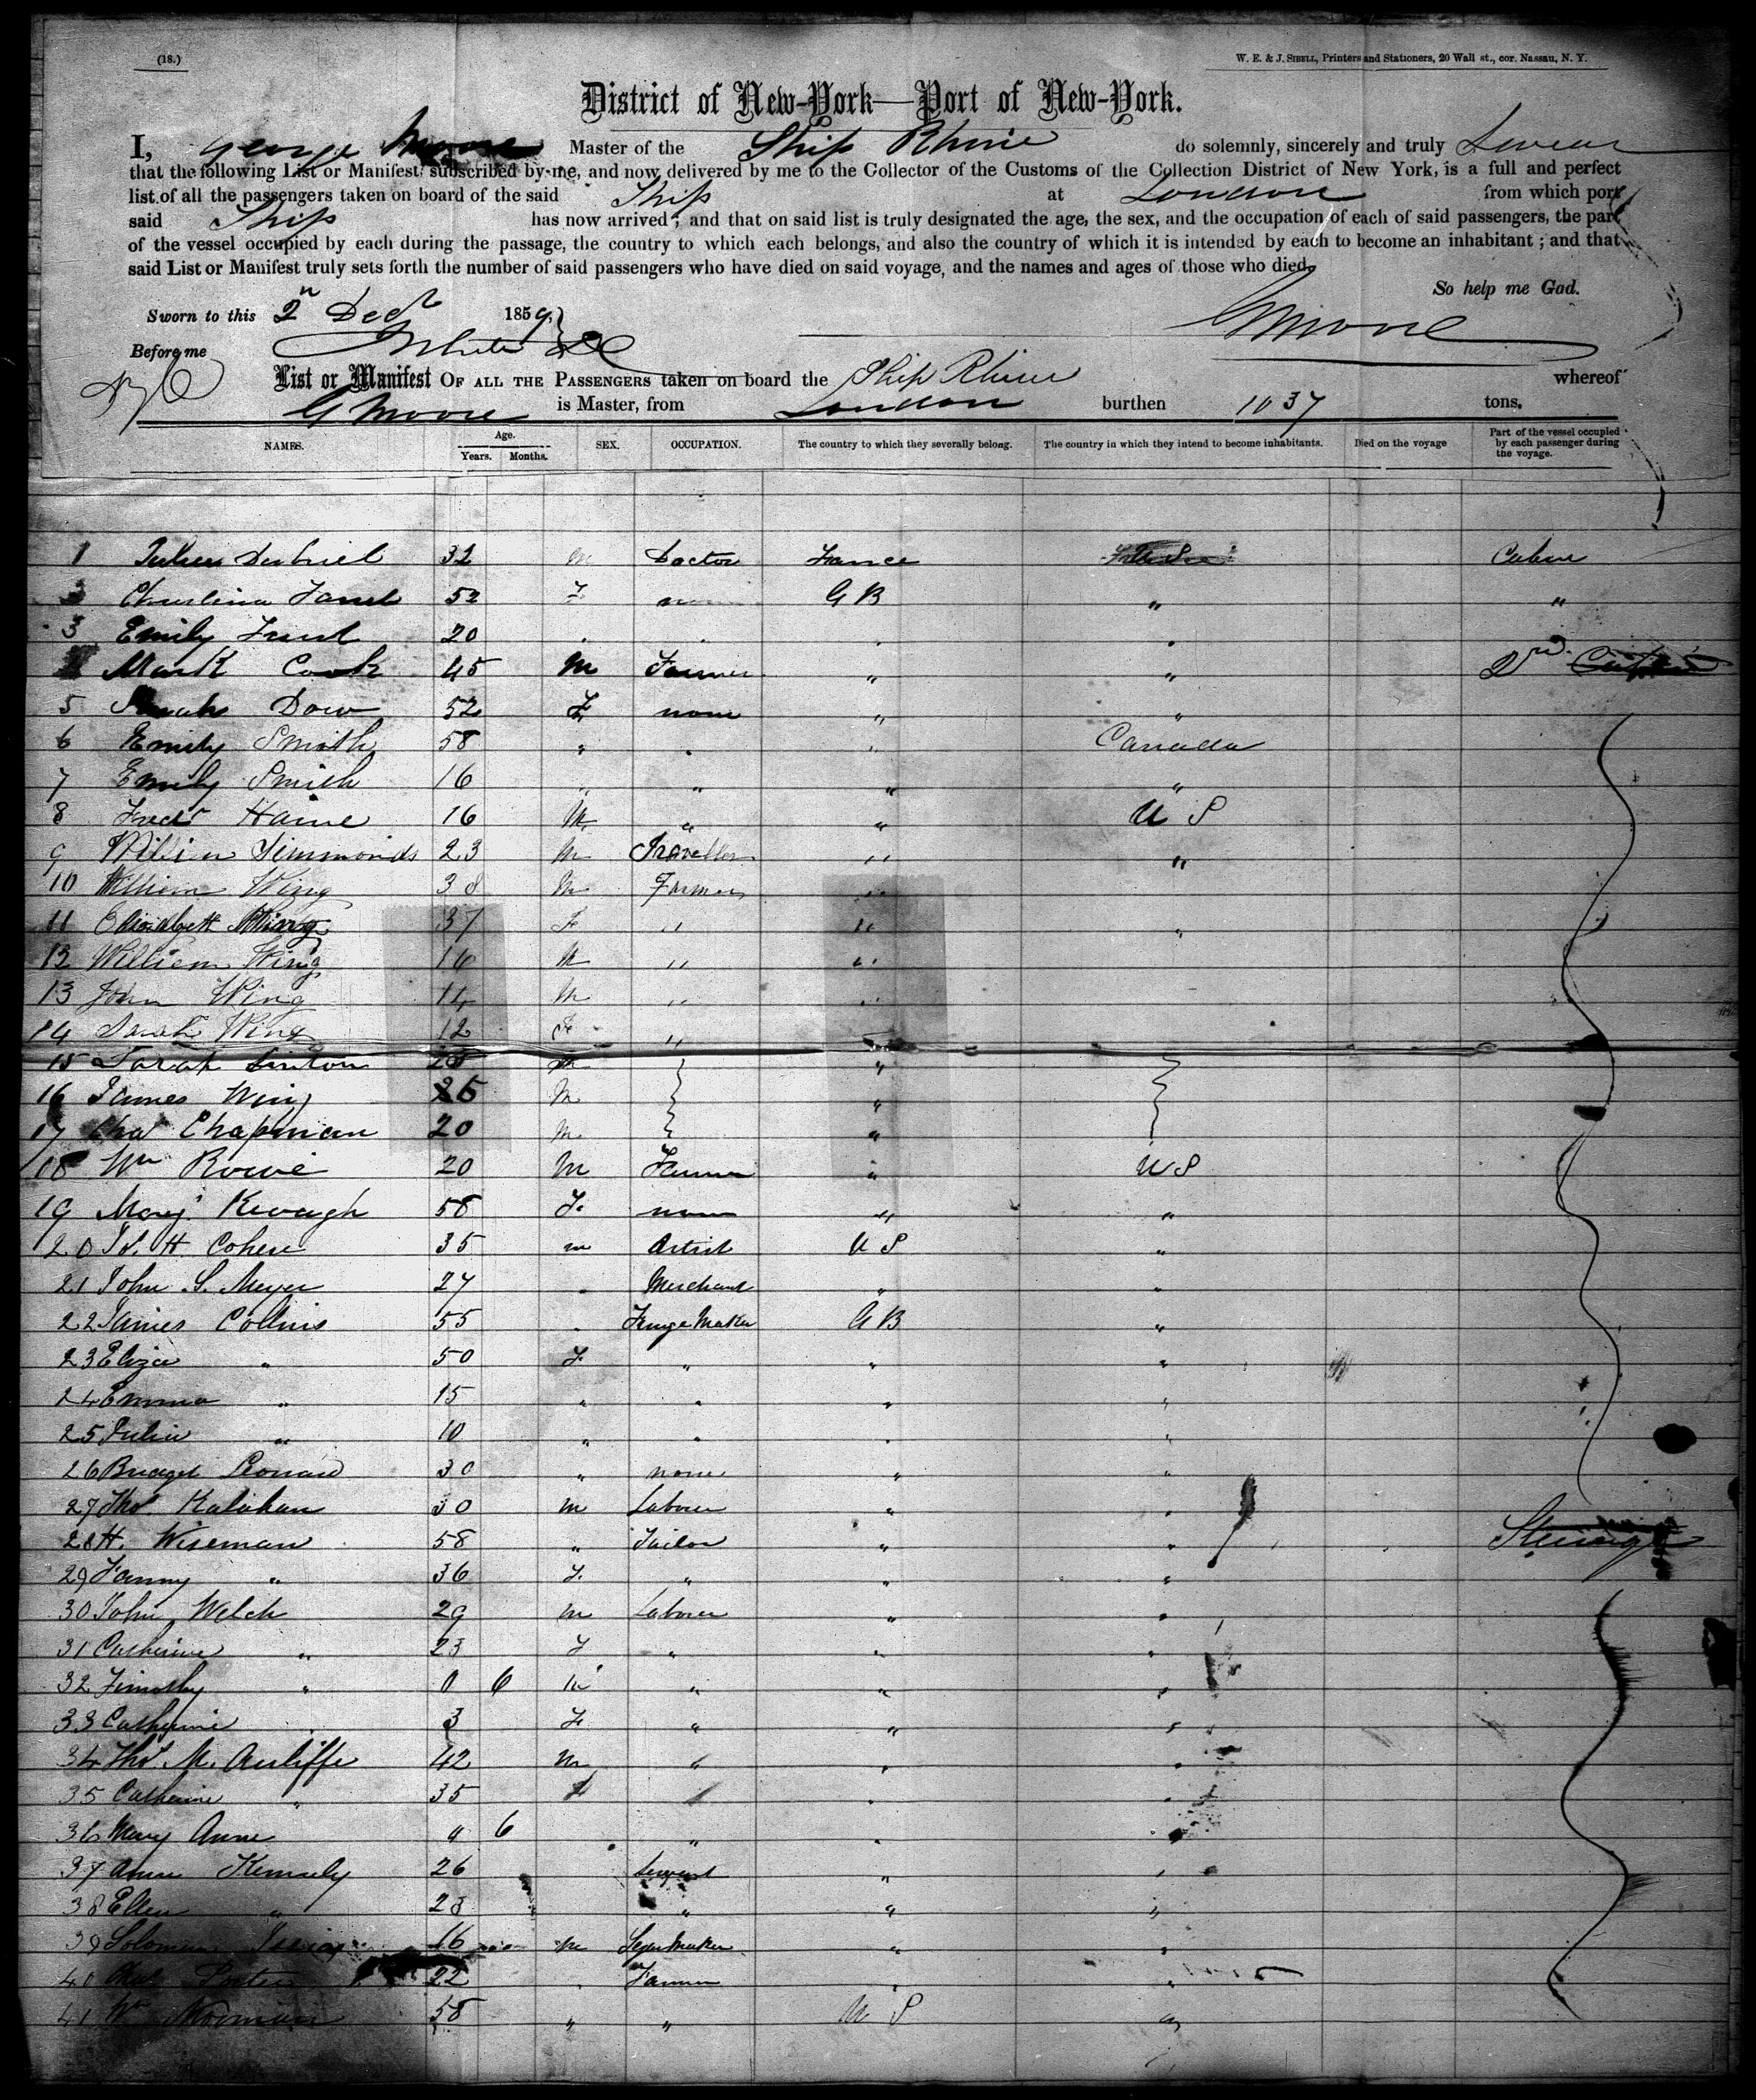 (18.)
W. E. & J. SIBELL, Printers and Stationers, 20 Wall st., cor. Nassau, N. Y.
District of New-York—Port of New-York.
I, George Moore Master of the Ship Rhine do solemnly, sincerely and truly Swear
that the following List or Manifest subscribed by me, and now delivered by me to the Collector of the Customs of the Collection District of New York, is a full and perfect
list of all the passengers taken on board of the said Ship at London from which port
said Ship has now arrived; and that on said list is truly designated the age, the sex, and the occupation of each of said passengers, the part
of the vessel occupied by each during the passage, the country to which each belongs, and also the country of which it is intended by each to become an inhabitant; and that
said List or Manifest truly sets forth the number of said passengers who have died on said voyage, and the names and ages of those who died.
So help me God.
Sworn to this 2n Decr 1859,
GMoore
Before me
List or Manifest OF ALL THE PASSENGERS taken on board the Ship Rhine whereof
G Moore is Master, from London burthen 1037 tons.
NAMES. Age. Years. Months. SEX. OCCUPATION. The country to which they severally belong. The country in which they intend to become inhabitants. Died on the voyage Part of the vessel occupied by each passenger during the voyage.
1 32 m Doctor France
2 52 F G B " "
3 Emily 20 " " " "
Mark Cook 45 m Farmer " " 2nd
5 Dow 52 F none " "
6 Emily Smith 58 " " " Canada
7 Emily Smith 16 " " " "
8 Fredk Haine 16 M " " U S
9 William Simmonds 23 m Traveller " "
10 William Wing 38 m Farmer "
11 Wing 37 F " " "
12 William Wing 16 M " "
13 John Wing 14 M " "
14 Sarah Wing 12 F "
15 Sarah "
16 James Wing M "
17 Chas Chapman 20 m "
18 Wm Rowe 20 M Farmer " U S
19 Keough 58 F none " "
20 H Cohen 35 m Artist U S "
21 John S. Meyer 27 " Merchant " "
22 James Collins 55 " G B "
23 Eliza " 50 F " " "
24 Emma " 15 " " " "
25 Julia " 10 " " " "
26 Bridget Leonard 30 " none " "
27 Thos Kalahan 30 m Laborer " "
28 H. Wiseman 58 " Tailor " " Steerage
29 Fanny " 36 F " " "
30 John Welch 29 m Laborer " "
31 Catherine " 23 F " " "
32 Timothy " 0 6 m " " "
33 Catherine " 3 F " " "
34 Thos M. Auliffe 42 m " " "
35 Catherine " 35 F " "
36 Mary Anne 6 " " "
37 Anne 26 Servant " "
38 Ellen " 23 " " "
39 Solomon 16 m Segar Maker " "
40 Porter 22 " Farmer " "
41 Wm Norman 58 " " U S "